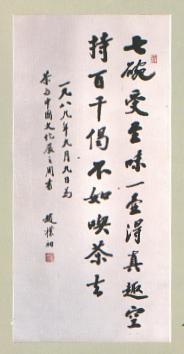 七碗受至味一壶得真趣空
持百千偈不如吃茶去
一九八九年九月九日为
茶与中国文化展之周书
赵朴初